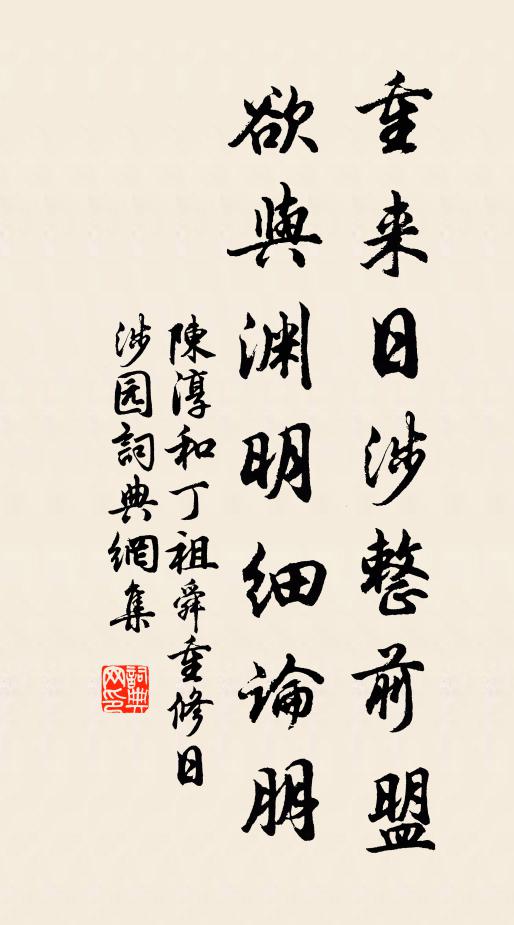 重来日涉整前盟
欲與渊明细论朋
陳淳和丁祖舜重修日
涉园詞典網集
詞典網印